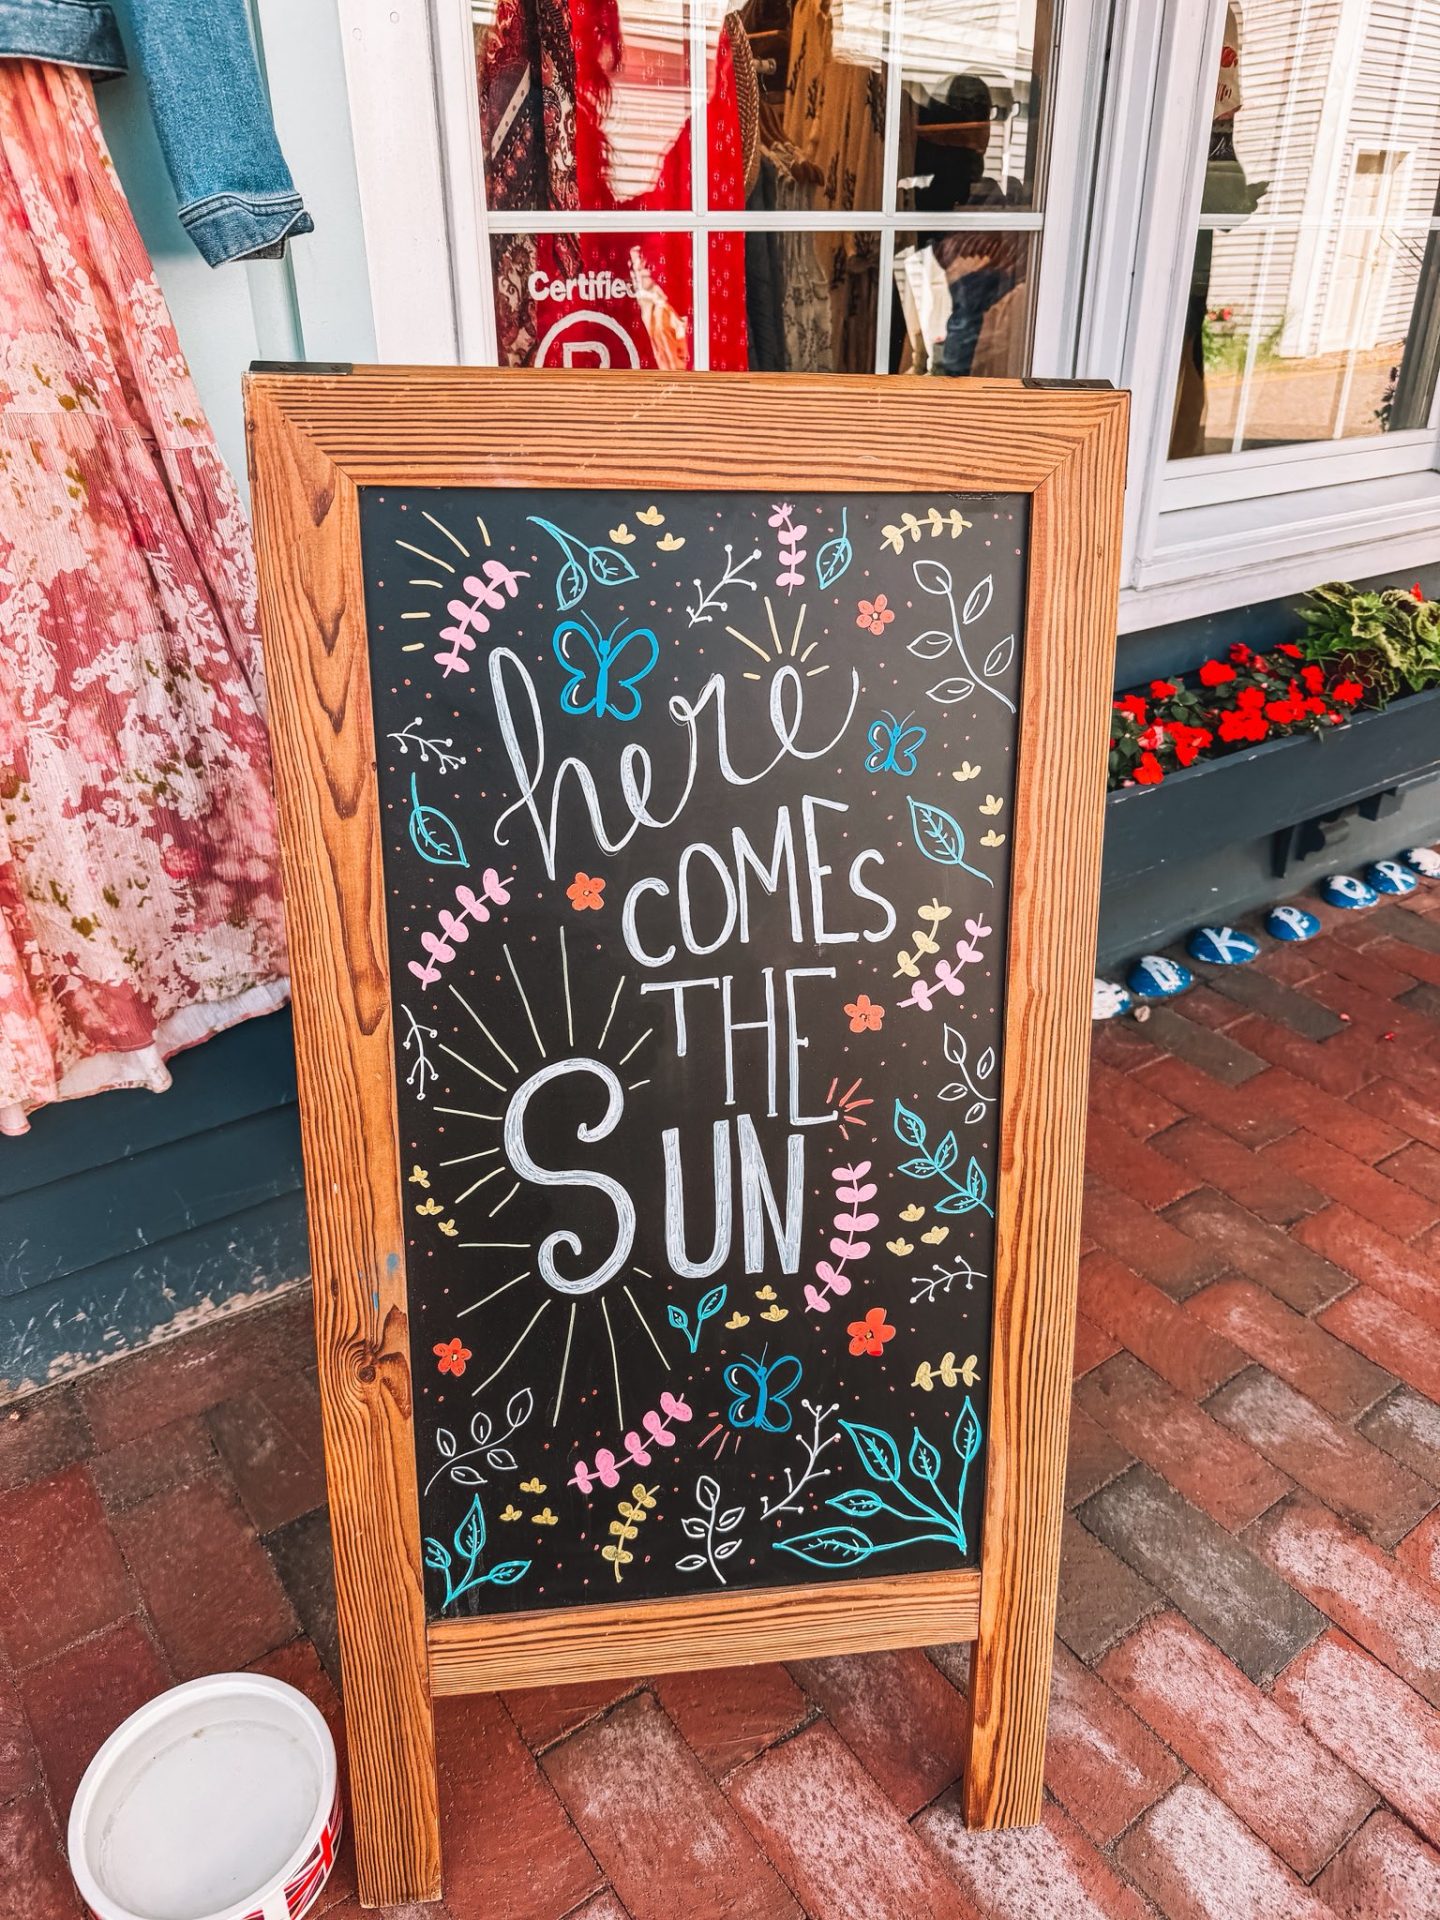 Certified
B
here
COMES
THE
SUN